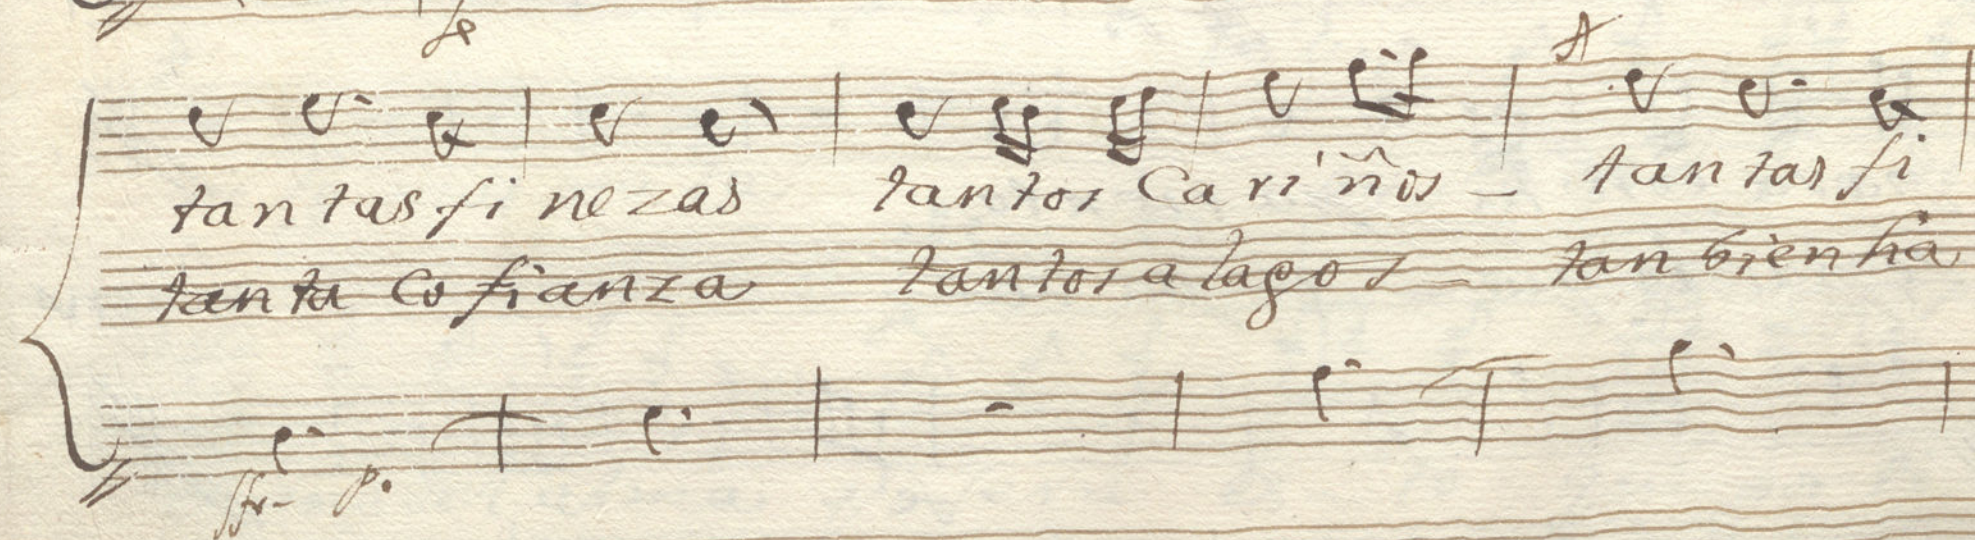 tan tas fi ne zas tan tos Ca ri ños - tan tas fi
tan ta co fi an z a tan tos a lago s tan bien ha
sfr- p.